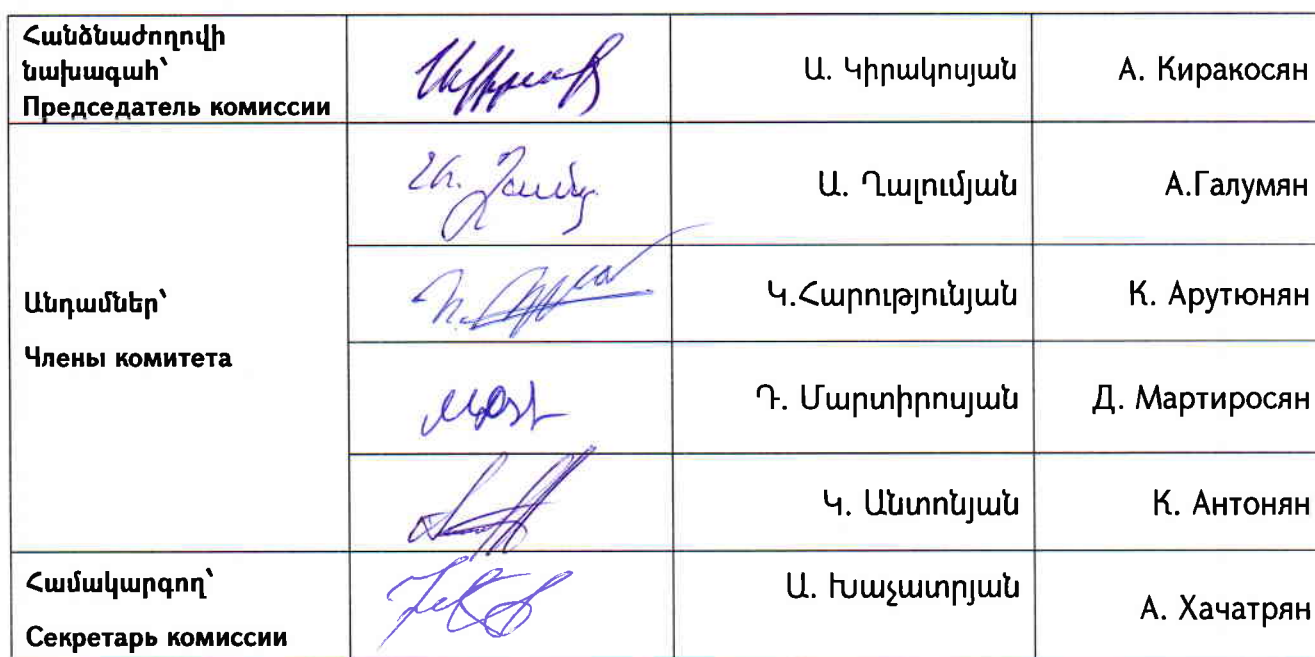 Հանձնաժողովի
նախագահ՝
Председатель комиссии
Ա. Կիրակոսյան
А. Киракосян
Ա. Ղալումյան
А.Галумян
Անդամներ՝
Члены комитета
Կ.Հարությունյան
К. Арутюнян
Դ. Մարտիրոսյան
Д. Мартиросян
Կ. Անտոնյան
К. Антонян
Համակարգող՝
Секретарь комиссии
Ա. Խաչատրյան
А. Хачатрян